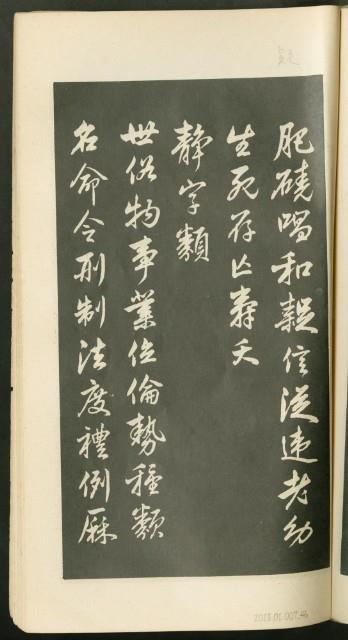 肥磽唱和疑信從違老幼
生死存亡壽夭
靜字類
世俗物事業位倫勢種類
名命令刑制法度禮例厤
2015.01.007.46